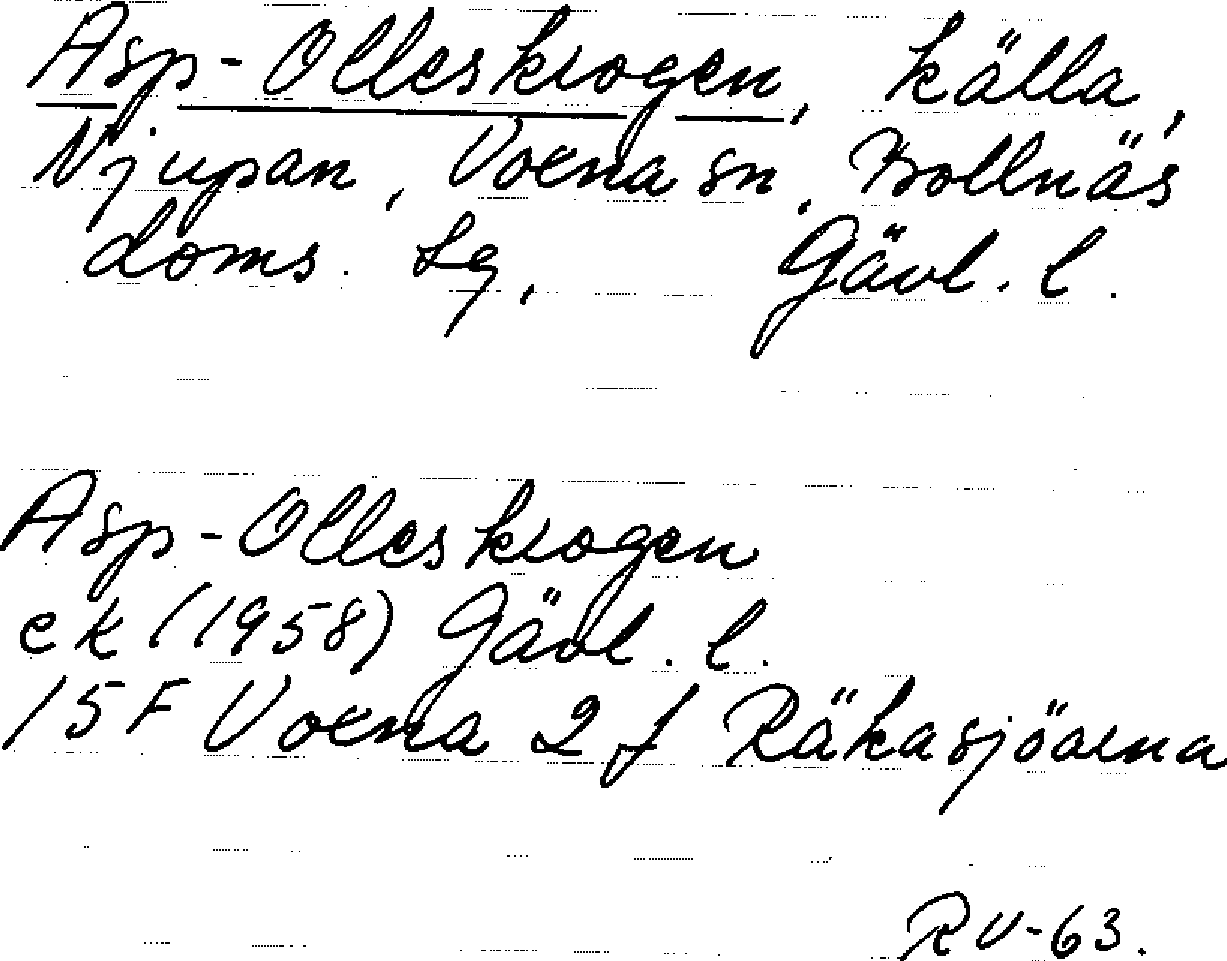 Asp-Olleskrogen, källa,
Njupan, Voxna sn, Bollnäs
doms. sg, Gävl. l.
Asp-Olleskrogen
ek (1958) Gävl. l.
15F Voxna 2 f Räkasjöarna
RV-63.